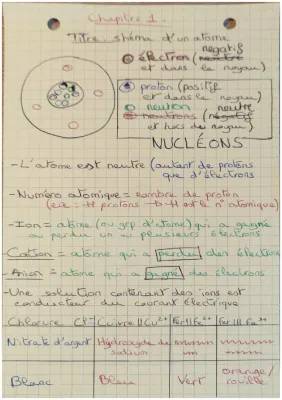 Chapitre 1.
Titre: shéma d'un atome
négatif
électron (neutre
et dans le noyau)
proton (positif
et dans le noyau)
neutron (neutre
neutrons (négatif
et hors du noyau)
NUCLÉONS
-L'atome est neutre (autant de protons
que d'électrons
-Numéro atomique = nombre de proton
(ex: H protons → H est le n° atomique)
-Ion = atome (ou grp d'atome) qui a gagné
ou perdu un ou plusieurs électrons.
-Cation = atome qui a perdu des électrons
-Anion = atome qui a gagné des électrons
-Une solution contenant des ions est
conducteur du courant électrique
Chlorure Cl⁻ Cuivre II Cu²⁺ Fer II Fe²⁺ Fer III Fe³⁺
Nitrate d'argent Hydroxyde de
sodium
Blanc Bleu Vert orange/
rouille